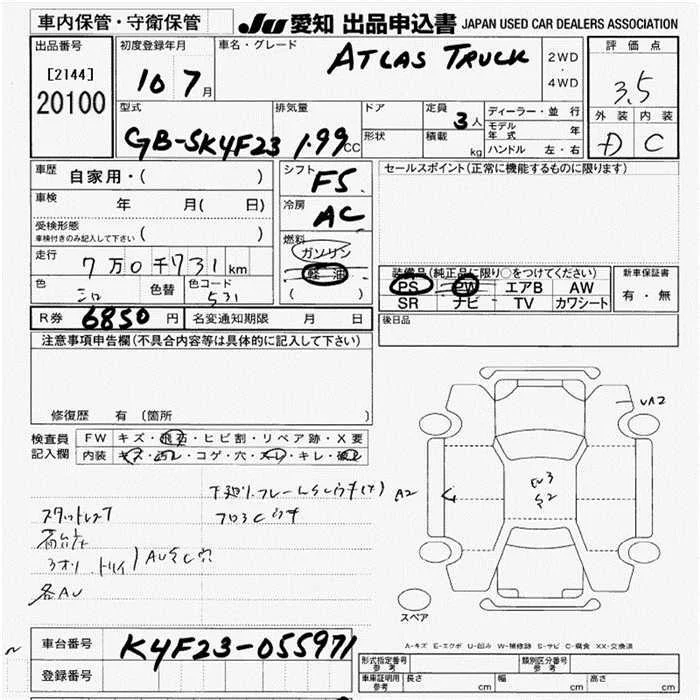 車内保管・守衛保管
JU 愛知 出品申込書 JAPAN USED CAR DEALERS ASSOCIATION
出品番号
[2144]
20100
初度登録年月
10 7月
車名・グレード
ATLAS TRUCK
2WD
・
4WD
評価点
3.5
外装 内装
D C
型式
GB-SK4F23
排気量
1.99 CC
ドア
形状
定員
3人
積載
kg
ディーラー・並行
モデル年式 年
ハンドル 左・右
車歴
自家用・( )
車検
年 月( 日)
受検形態
車検付きのみ記入して下さい ( )
走行
7万0千731km
色
シロ
色替
色コード
531
シフト
F5
冷房
AC
燃料
ガソリン
軽油
( )
セールスポイント(正常に機能するものに限ります)
装備品(純正品に限り○をつけてください)
PS PW エアB AW
SR ナビ TV カワシート
新車保証書
有・無
R券 6850 円 名変通知期限 月 日
後日品
注意事項申告欄(不具合内容等は具体的に記入して下さい)
修復歴 有 (箇所
検査員
記入欄
FW キズ・飛石・ヒビ割・リペア跡・X要
内装 キズ・汚レ・コゲ・穴・スレ・キレ・破レ
各AU
UA2
A2
スペア
A-キズ E-エクボ U-凹み W-補修跡 S-サビ C-腐食 XX-交換済
車台番号
K4F23-055971
登録番号
形式指定番号
参考
類別区分番号
参考
車庫証明用
参考
長さ cm 幅 cm 高さ cm